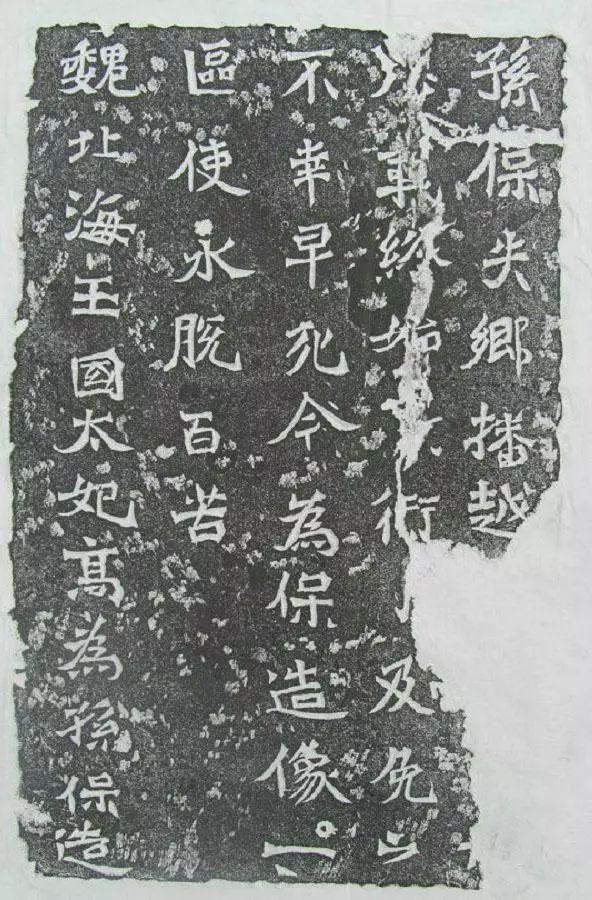 孫保失鄉播越
事 始 及免
不幸早死今為保造像一
區使永脫百苦
魏北海王國太妃高為孫保造